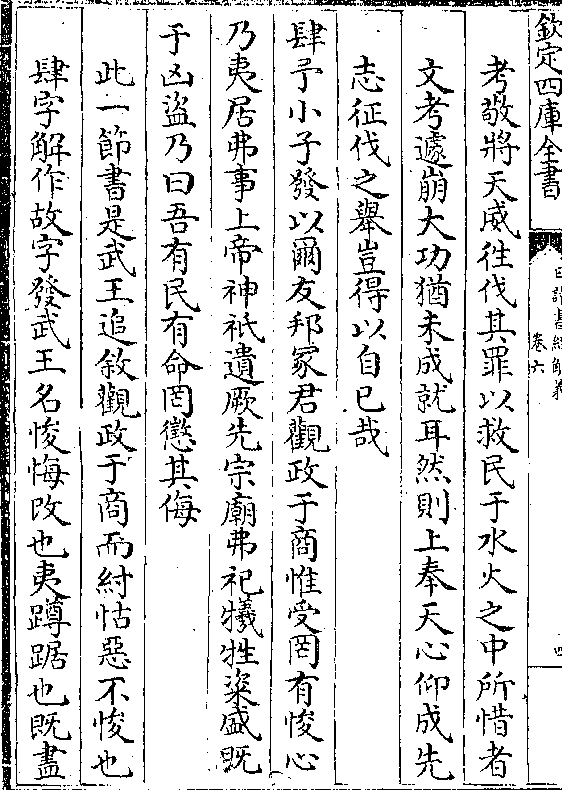 欽定四庫全書
日講書經解義
卷六
四
考敬將天威往伐其罪以救民于水火之中所惜者
文考遽崩大功猶未成就耳然則上奉天心仰成先
志征伐之舉豈得以自已哉
肆予小子發以爾友邦冢君觀政于商惟受罔有悛心
乃夷居弗事上帝神祇遺厥先宗廟弗祀犧牲粢盛既
于凶盜乃曰吾有民有命罔懲其侮
此一節書是武王追敘觀政于商而紂怙惡不悛也
肆字解作故字發武王名悛悔改也夷蹲踞也既盡